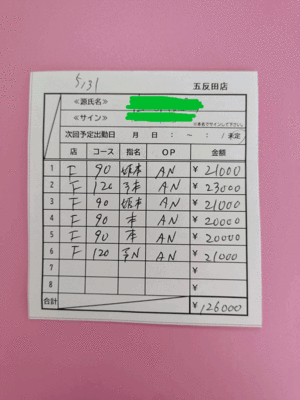 5/31 五反田店
≪源氏名≫
≪サイン≫
※本名でサインして下さい。
次回予定出勤日 月 日 : ~ : / 未定
店 コース 指名 OP 金額
1 F 90 姫本 AN ¥ 21000
2 F 120 本 AN ¥ 23000
3 F 90 姫本 AN ¥ 21000
4 F 90 本 AN ¥ 20000
5 F 90 本 AN ¥ 20000
6 F 120 AN ¥ 21000
7 ¥
8 ¥
合計 ¥ 126000